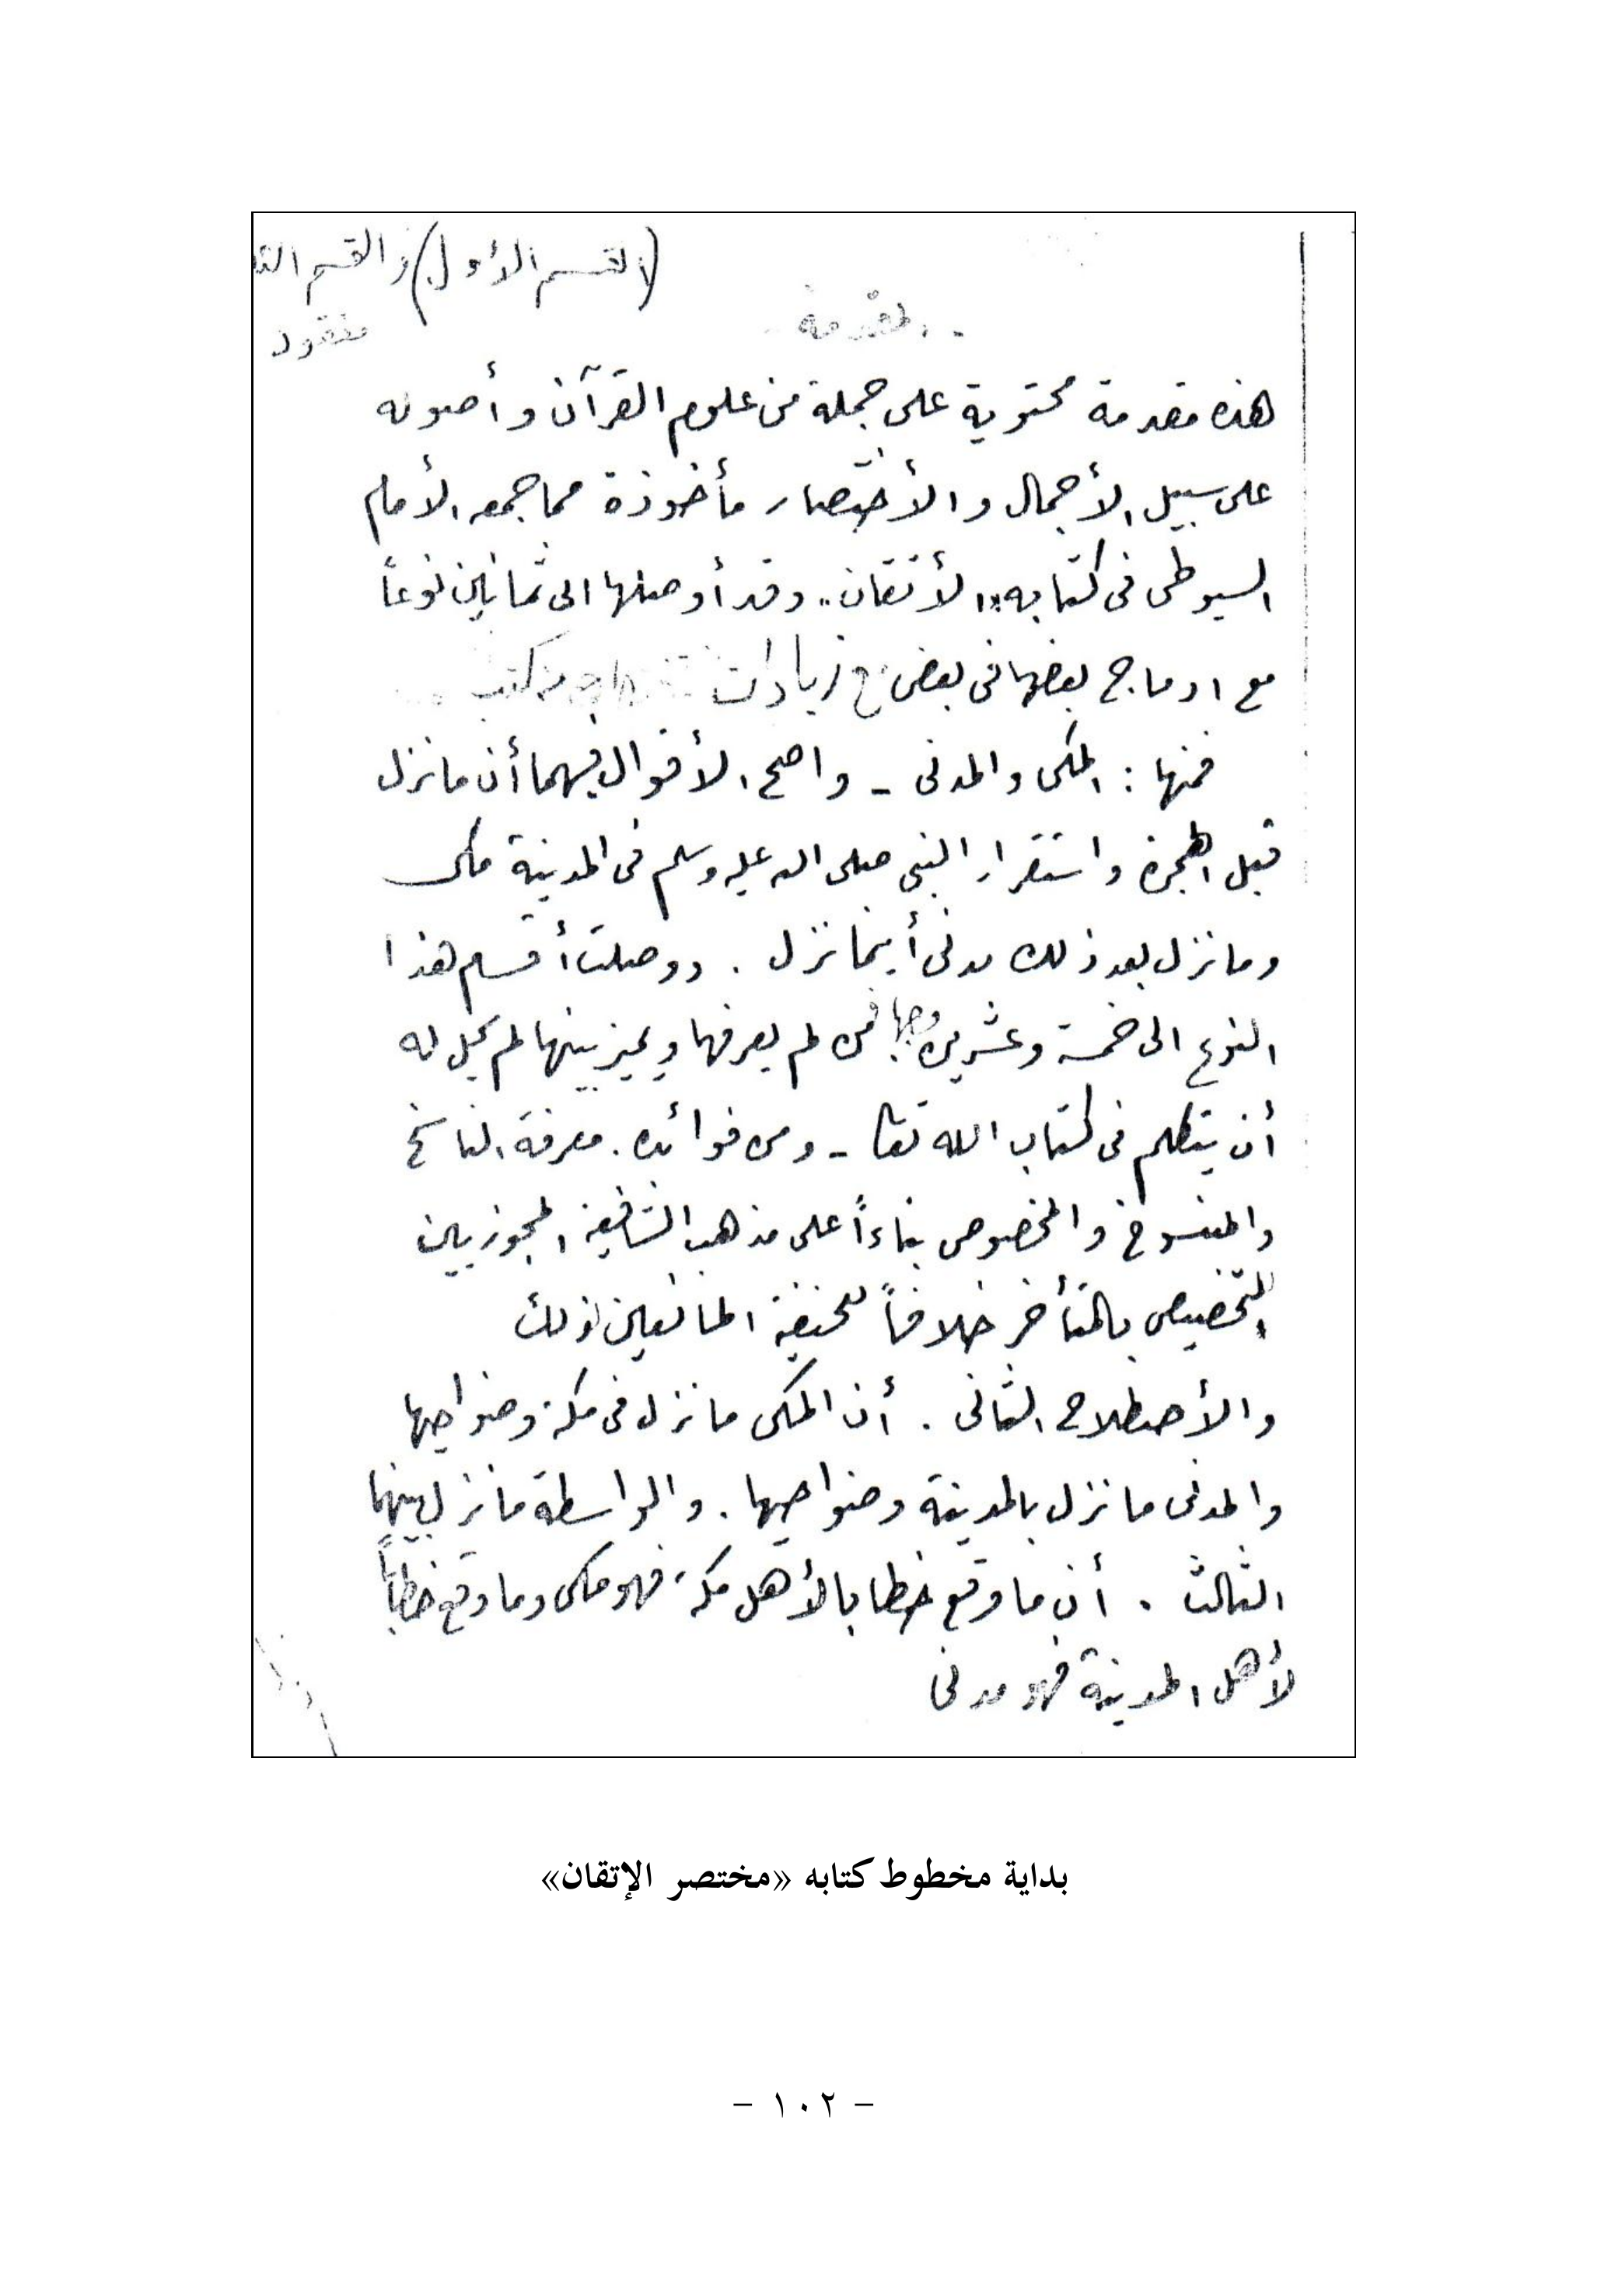 (القسم الأول) والقسم الثا
مفقود
المقدمة
هذه مقدمة محتوية على جملة من علوم القرآن وأصوله
على سبيل الأجمال والأختصار مأخوذة مما جمعه الأمام
السيوطى فى كتابه "الأتقان" وقد أوصلها الى ثمانين نوعاً
مع ادماج بعضها فى بعض مع زيادات من كتب
فمنها : المكى والمدنى - واصح الأقوال فيهما أن ما نزل
قبل الهجرة واستقرار النبى صلى الله عليه وسلم فى المدينة مكى
وما نزل بعد ذلك مدنى أينما نزل . ووصلت أقسام هذا
النوع الى خمسة وعشرين وجها فمن لم يعرفها ويميز بينها لم يحل له
أن يتكلم فى كتاب الله تعالى - ومن فوائده . معرفة الناسخ
والمنسوخ والمخصوص بناءاً على مذهب الشافعية المجوزيين
التخصيص بالمتأخر خلافاً للحنفية المانعين ذلك
والأصطلاح الثانى . أن المكى ما نزل فى مكة وضواحيها
والمدنى ما نزل بالمدينة وضواحيها . والواسطة ما نزل بينهما
الثالث . أن ما وقع خطابا لأهل مكة فهو مكى وما وقع خطاباً
لأهل المدينة فهو مدنى
بداية مخطوط كتابه «مختصر الإتقان»
- ١٠٢ -